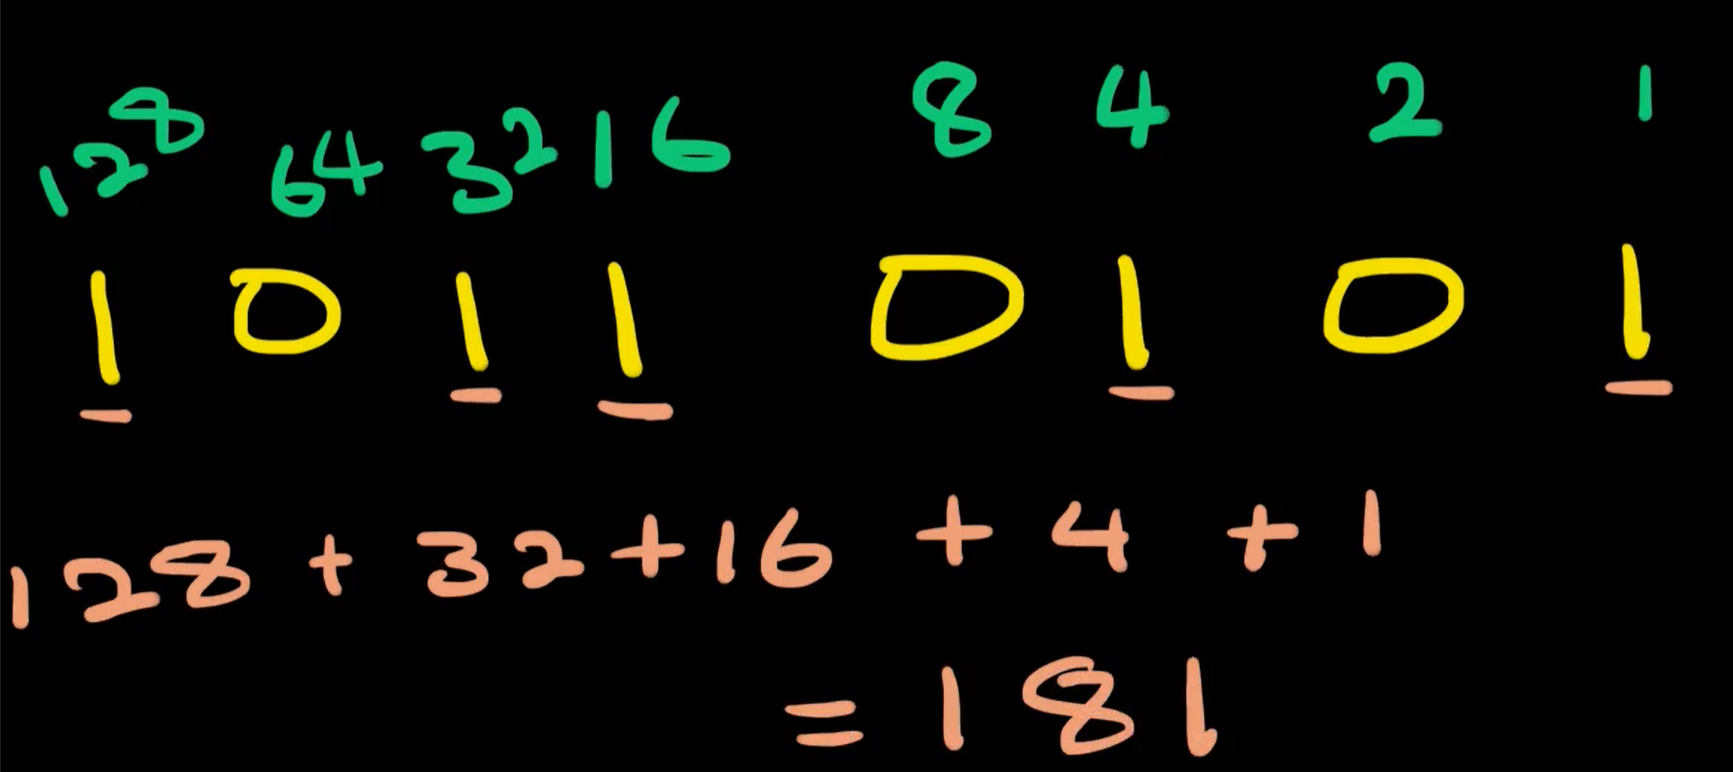 128 64 32 16 8 4 2 1
1 0 1 1 0 1 0 1
128 + 32 + 16 + 4 + 1
= 181